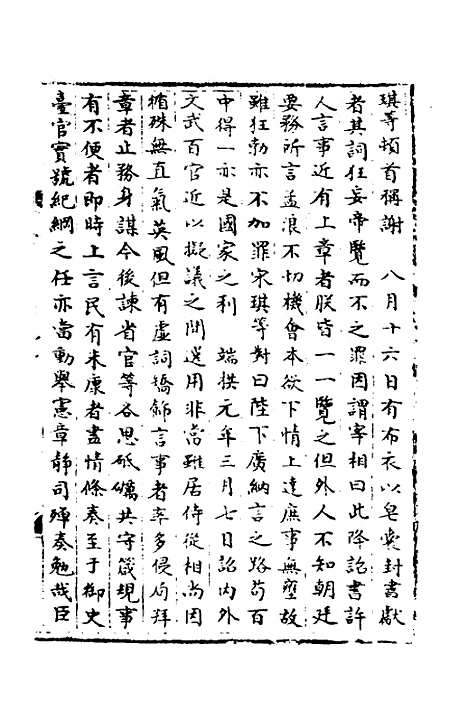 琪等頓首稱謝　八月十六日有布衣以皂囊封書獻
者其詞狂妄帝覽而不之罪因謂宰相曰此降詔書許
人言事近有上章者朕皆一一覽之但外人不知朝廷
要務所言孟浪不切機會本欲下情上達庶事無壅故
雖狂勃亦不加罪宋琪等對曰陛下廣納言之路苟百
中得一亦是國家之利　端拱元年三月七日詔內外
文武百官近以擬議之間選用非當雖居侍從相尚因
循殊無直氣英風但有虛詞矯飾言事者率多侵局拜
章者止務身謀今後諫省官等各思砥礪共守箴規事
有不便者即時上言民有未康者盡情條奏至于御史
臺官實號紀綱之任亦當動舉憲章靜司殫奏勉哉臣